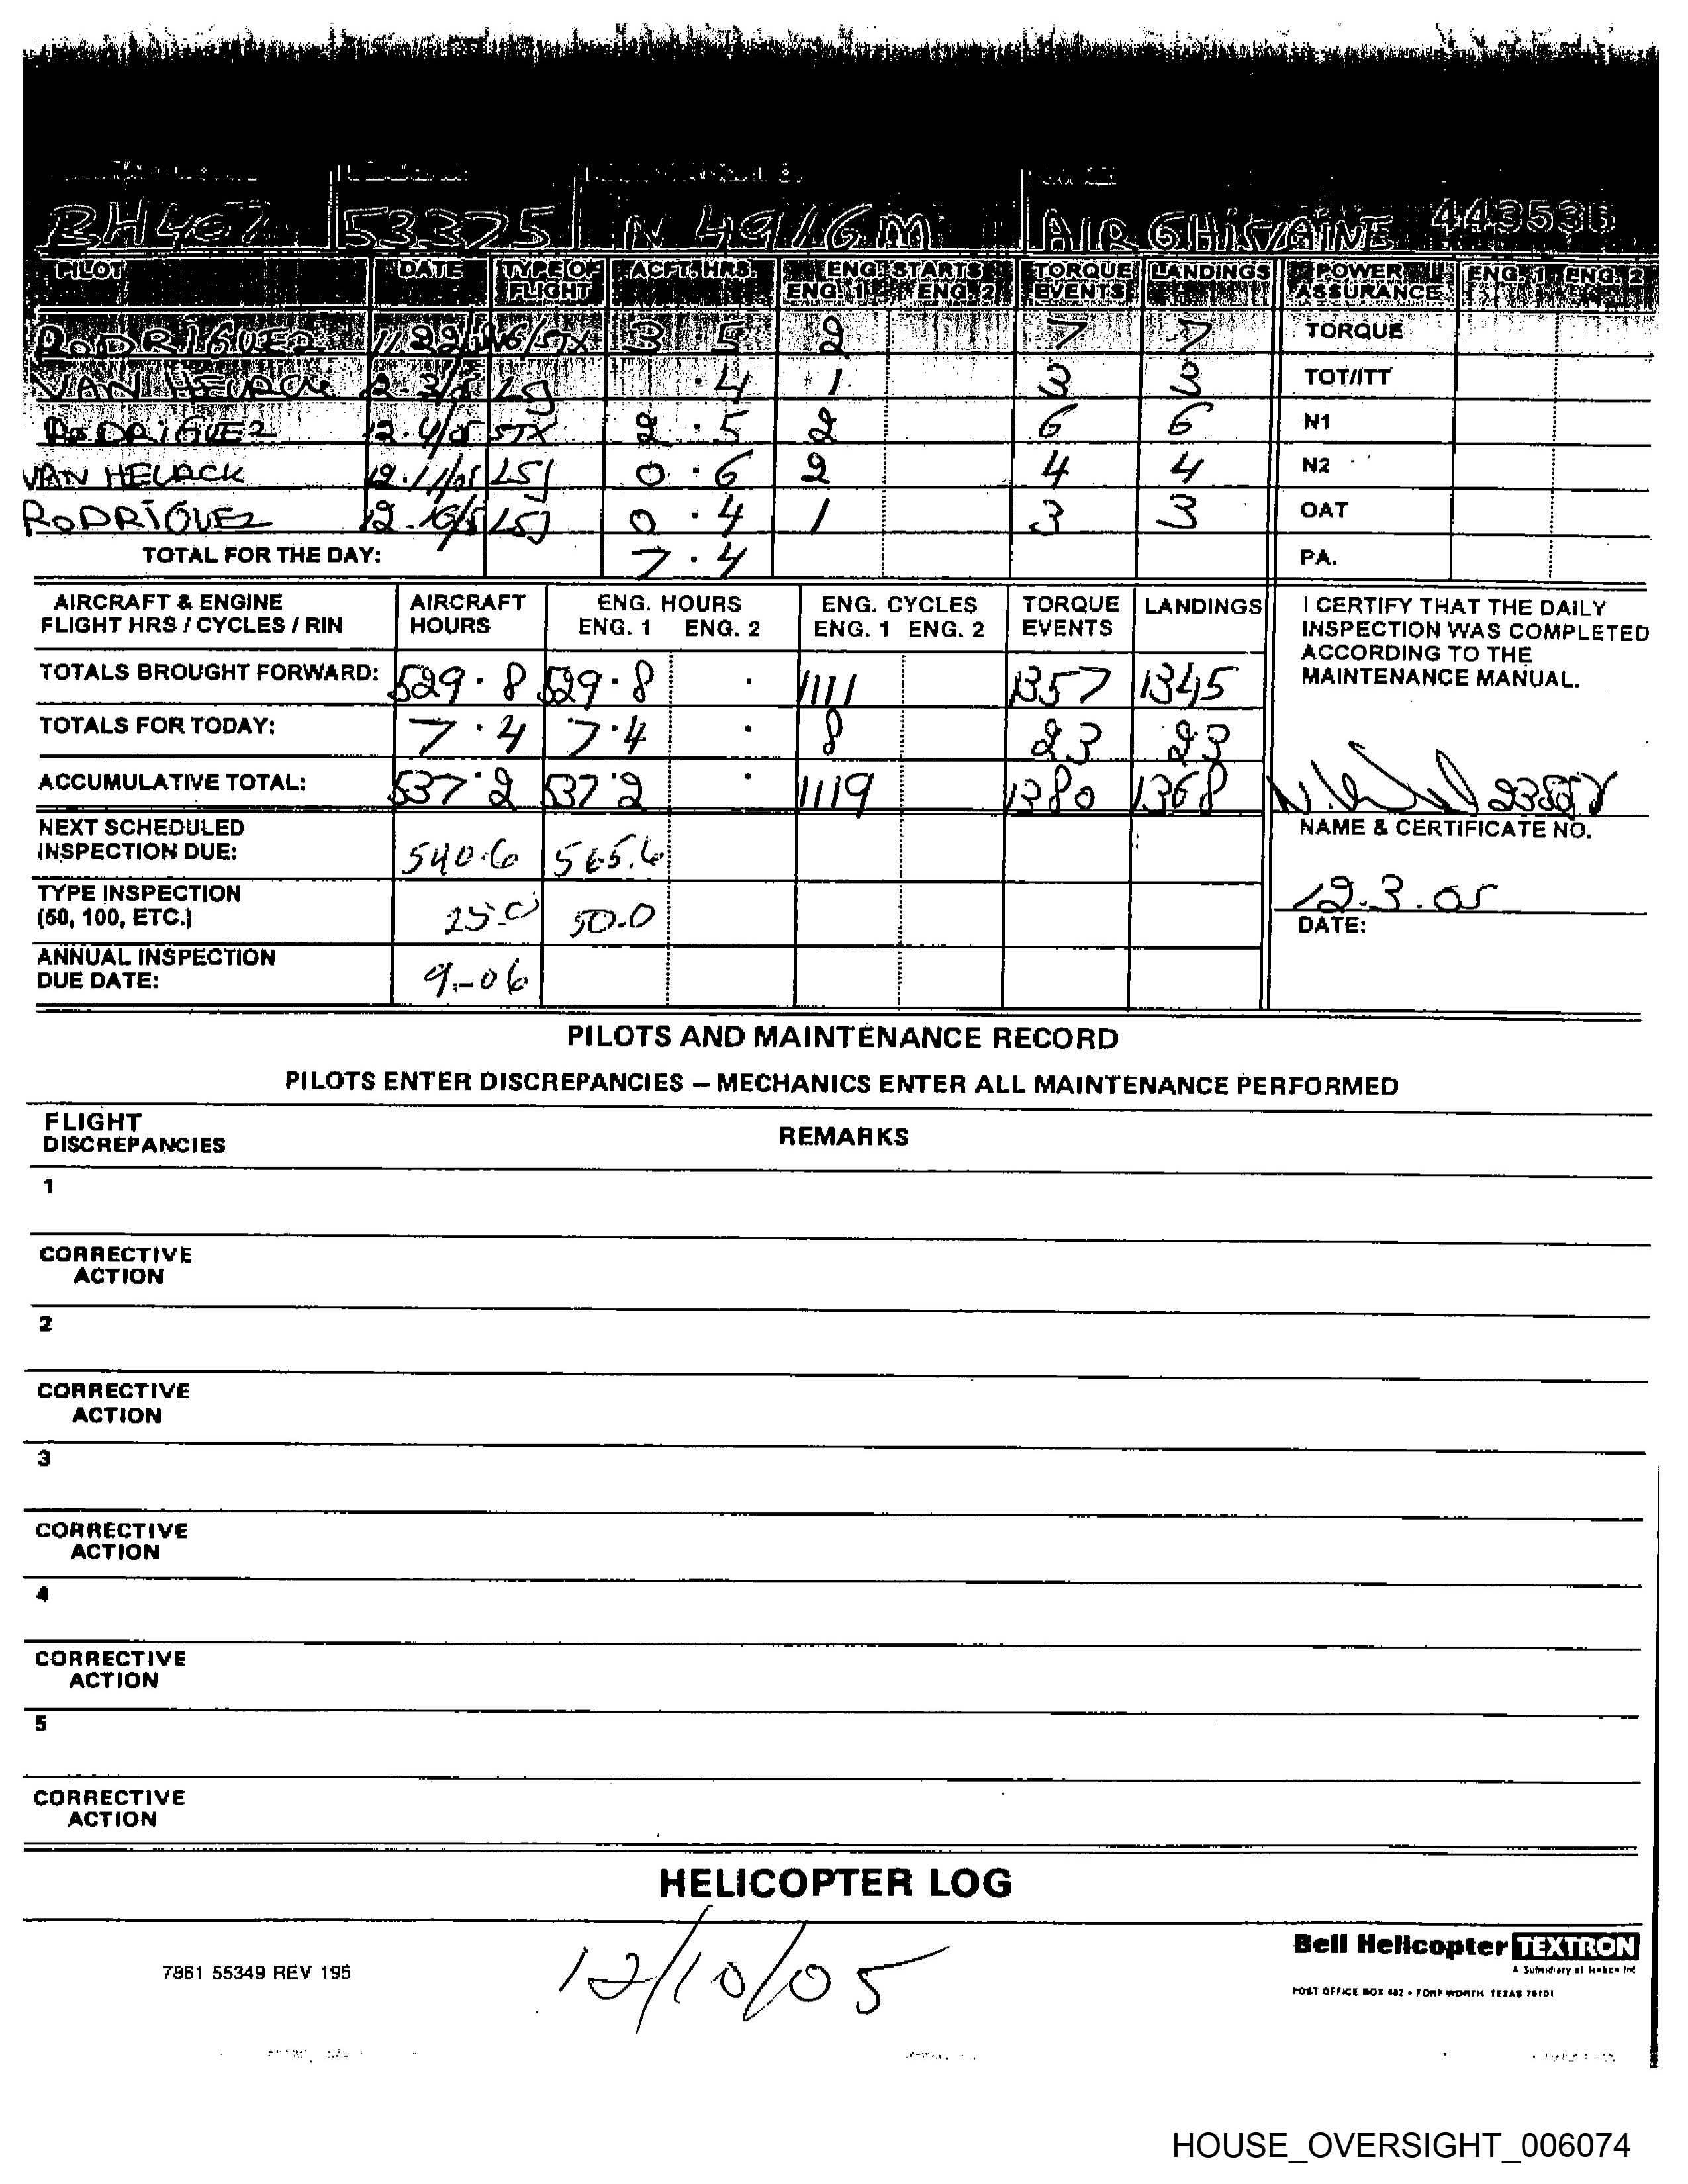 BH407 53375 N 4916GM AIR GHISLAINE 443536
PILOT DATE TYPE OF FLIGHT ACFT. HRS. ENG. STARTS ENG. 1 ENG. 2 TORQUE EVENTS LANDINGS POWER ASSURANCE ENG. 1 ENG. 2
RODRIGUEZ 3 5 2 7 7 TORQUE
VAN HEUACK LSJ .4 1 3 3 TOT/ITT
RODRIGUEZ 12.4/05 STX 2.5 2 6 6 N1
VAN HEUACK 12.11/05 LSJ 0.6 2 4 4 N2
RODRIGUEZ LSJ 0.4 1 3 3 OAT
TOTAL FOR THE DAY: 7.4 PA.
AIRCRAFT & ENGINE FLIGHT HRS / CYCLES / RIN AIRCRAFT HOURS ENG. HOURS ENG. 1 ENG. 2 ENG. CYCLES ENG. 1 ENG. 2 TORQUE EVENTS LANDINGS
I CERTIFY THAT THE DAILY
INSPECTION WAS COMPLETED
ACCORDING TO THE
MAINTENANCE MANUAL.
TOTALS BROUGHT FORWARD: 529.8 529.8 . 1111 1357 1345
TOTALS FOR TODAY: 7.4 7.4 . 8 23 23
ACCUMULATIVE TOTAL: 537.2 537.2 . 1119 1380 1368
NAME & CERTIFICATE NO.
NEXT SCHEDULED
INSPECTION DUE: 540.6 565.6
TYPE INSPECTION
(50, 100, ETC.) 25.0 50.0
12.3.05
DATE:
ANNUAL INSPECTION
DUE DATE: 9-06
PILOTS AND MAINTENANCE RECORD
PILOTS ENTER DISCREPANCIES – MECHANICS ENTER ALL MAINTENANCE PERFORMED
FLIGHT
DISCREPANCIES REMARKS
1
CORRECTIVE
ACTION
2
CORRECTIVE
ACTION
3
CORRECTIVE
ACTION
4
CORRECTIVE
ACTION
5
CORRECTIVE
ACTION
HELICOPTER LOG
7861 55349 REV 195
12/10/05
Bell Helicopter TEXTRON
A Subsidiary of Textron Inc
POST OFFICE BOX 482 • FORT WORTH TEXAS 76101
HOUSE_OVERSIGHT_006074